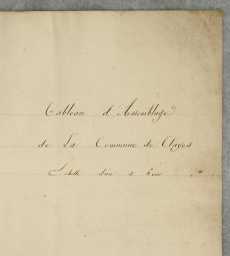 Tableau d'Assemblage
de La Commune de Clayes
Echelle de 1 à